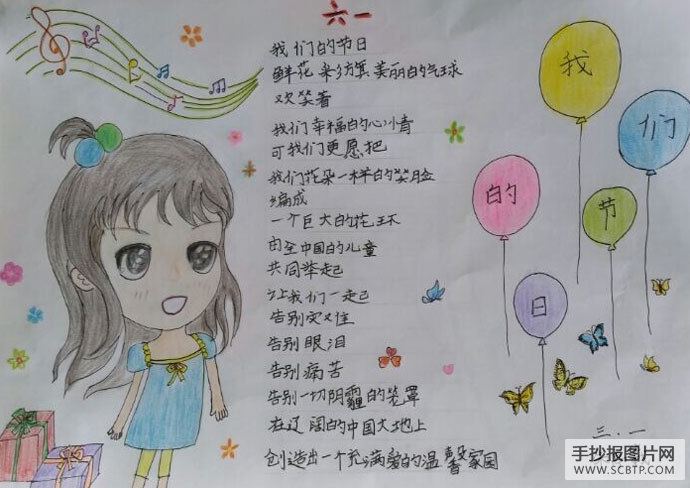 六一
我们的节日
鲜花 彩旗 美丽的气球
欢笑着
我们幸福的心情
可我们更愿把
我们花朵一样的笑脸
编成
一个巨大的花环
由全中国的儿童
共同举起
让我们一起
告别灾难
告别眼泪
告别痛苦
告别一切阴霾的笼罩
在辽阔的中国大地上
创造出一个充满爱的温馨家园
我
们
的
节
日
三.一
手抄报图片网
WWW.SCBTP.COM